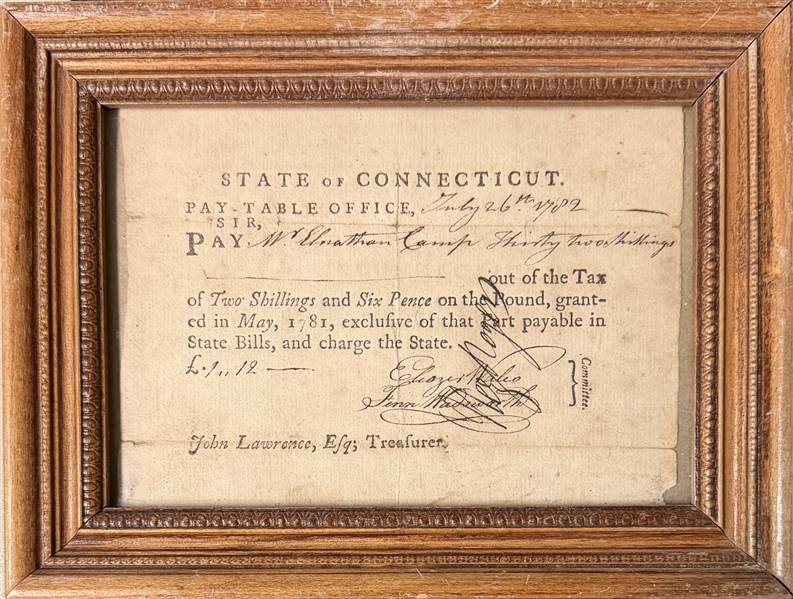 STATE OF CONNECTICUT.
PAY-TABLE OFFICE, July 26th 1782
SIR,
PAY Mr Elnathan Camp Thirty two Shillings
out of the Tax
of Two Shillings and Six Pence on the Pound, grant-
ed in May, 1781, exclusive of that Part payable in
State Bills, and charge the State.
£.1,, 12
Eliazer Wales
Fenn Wadsworth
Committee.
John Lawrence, Esq; Treasurer.